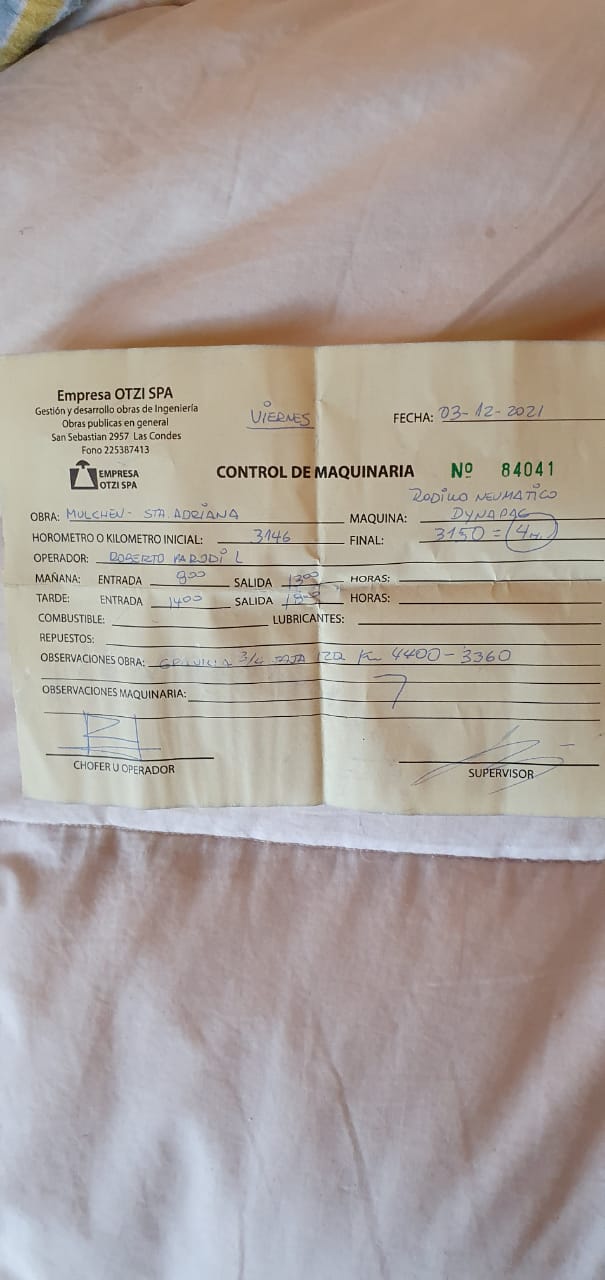 Empresa OTZI SPA
Gestión y desarrollo obras de Ingeniería
Obras publicas en general
San Sebastian 2957 Las Condes
Fono 225387413
EMPRESA
OTZI SPA
VIERNES
FECHA: 03-12-2021
CONTROL DE MAQUINARIA Nº 84041
RODILLO NEUMATICO
OBRA: MULCHEN - STA. ADRIANA MAQUINA: DYNAPAC
HOROMETRO O KILOMETRO INICIAL: 3146 FINAL: 3150 = 4H.
OPERADOR: ROBERTO PARODI L
MAÑANA: ENTRADA 800 SALIDA 1300 HORAS:
TARDE: ENTRADA 1400 SALIDA 1800 HORAS:
COMBUSTIBLE: LUBRICANTES:
REPUESTOS:
OBSERVACIONES OBRA: 3/4 IZQ Km 4400-3360
OBSERVACIONES MAQUINARIA:
CHOFER U OPERADOR SUPERVISOR